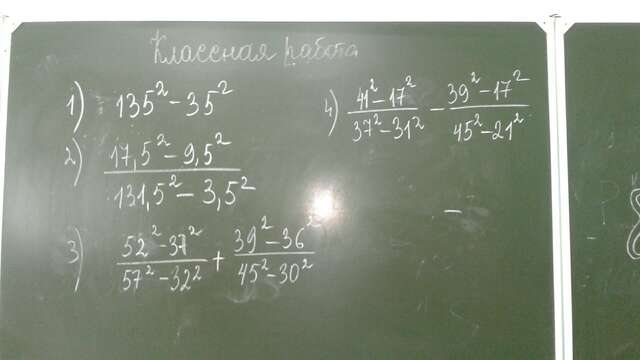 Классная работа
1) 135² - 35²
2) (17,5² - 9,5²) / (131,5² - 3,5²)
3) (52² - 37²) / (57² - 32²) + (39² - 36²) / (45² - 30²)
4) (41² - 17²) / (37² - 31²) - (39² - 17²) / (45² - 21²)